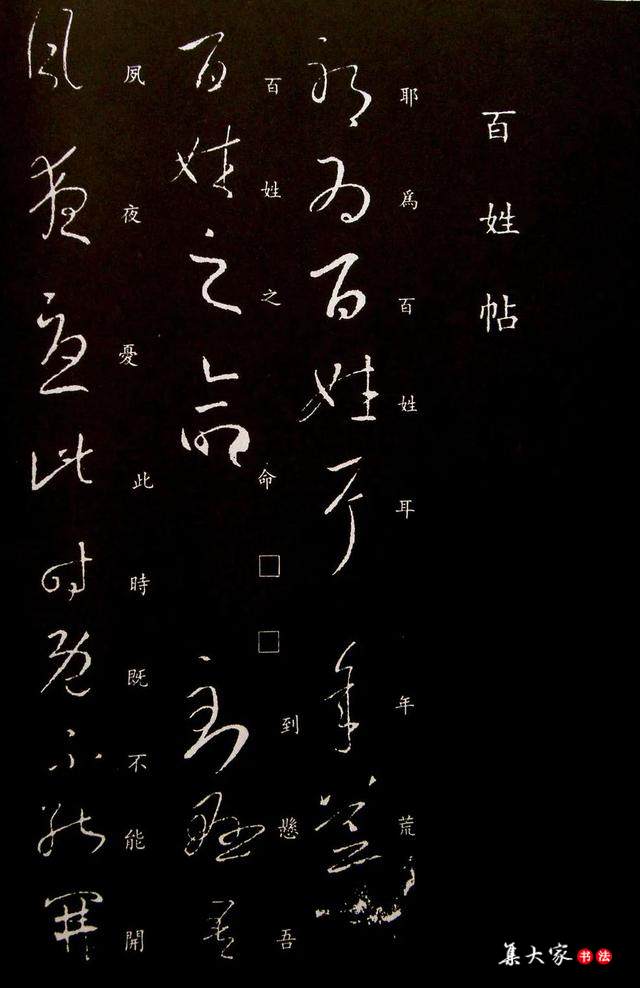 百姓帖
耶為百姓耳年荒
百姓之命□□到懸吾
夙夜憂此時既不能開
集大家书法